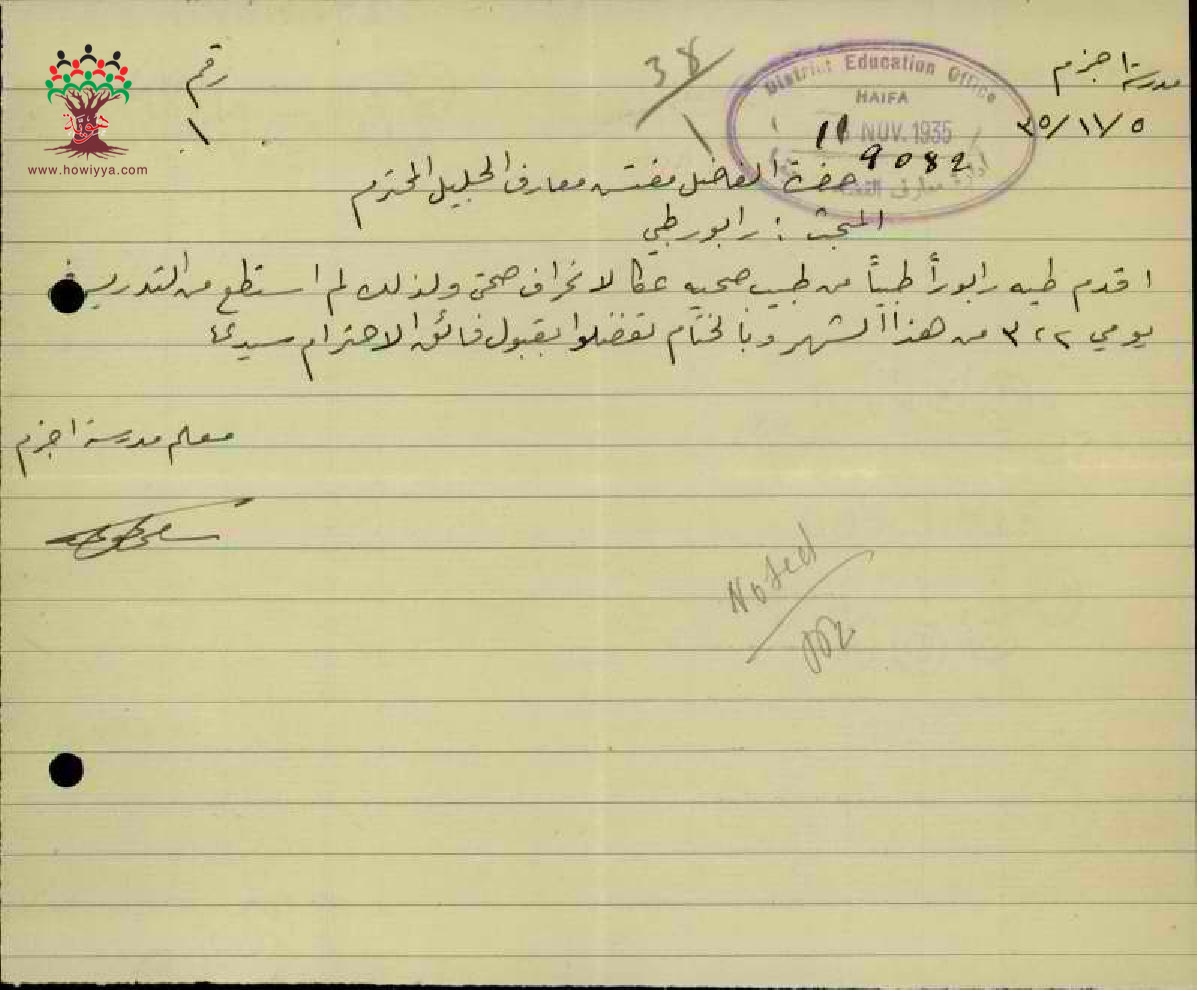 مدرسة اجزم
٣٥/١١/٥
رقم
١
38
District Education Office
HAIFA
11 NOV. 1935
9082
حضرة الفاضل مفتش معارف الجليل المحترم
المبحث : رابور طبي
اقدم طيه رابوراً طبياً من طبيب صحية عكا لانحراف صحتي ولذلك لم استطع من التدريس
يومي ٢،٣ من هذا الشهر وبالختام تفضلوا بقبول فائق الاحترام سيدي
معلم مدرسة اجزم
Noted
هوية
www.howiyya.com